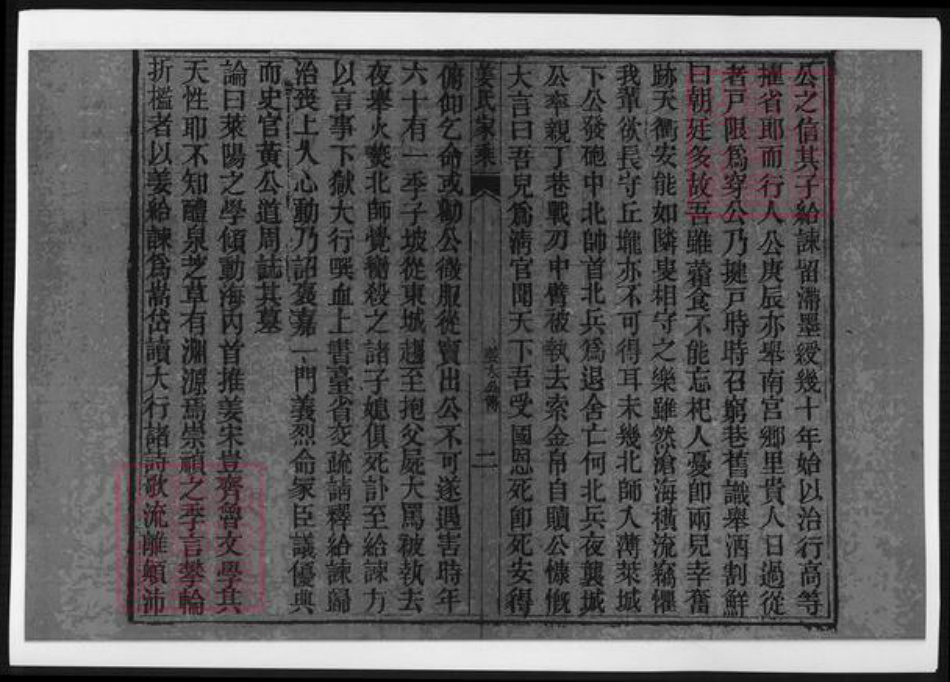 公之信其子給諫留滯墨綬幾十年始以治行高等
擢省耶而行人公庚辰亦舉南宮鄉里貴人日過從
者戸限爲穿公乃揵戸時時召窮巷舊識舉酒割鮮
曰朝廷多故吾雖藿食不能忘杞人憂卽兩兒幸奮
跡天衢安能如隣叟相守之樂雖然滄海橫流竊懼
我輩欲長守丘壠亦不可得耳未幾北師入薄萊城
下公發砲中北帥首北兵爲退舍亡何北兵夜襲城
公率親丁巷戰刃中臂被執去索金帛自贖公慷慨
大言曰吾兒爲淸官聞天下吾受國恩死卽死安得
姜氏家乘
姜公傳
二
俯仰乞命或勸公微服從竇出公不可遂遇害時年
六十有一季子坡從東城趨至抱父屍大罵被執去
夜舉火燹北師覺衝殺之諸子媳俱死訃至給諫方
以言事下獄大行嘆血上書臺省交疏請釋給諫歸
治喪上人心動乃詔褒嘉一門義烈命家臣議優典
而史官黃公道周誌其墓
論曰萊陽之學傾動海內首推姜宋豈齊魯文學其
天性耶不知醴泉芝草有淵源焉崇禎之季言攀輪
折檻者以姜給諫爲嵩岱讀大行諸詩歌流離顛沛